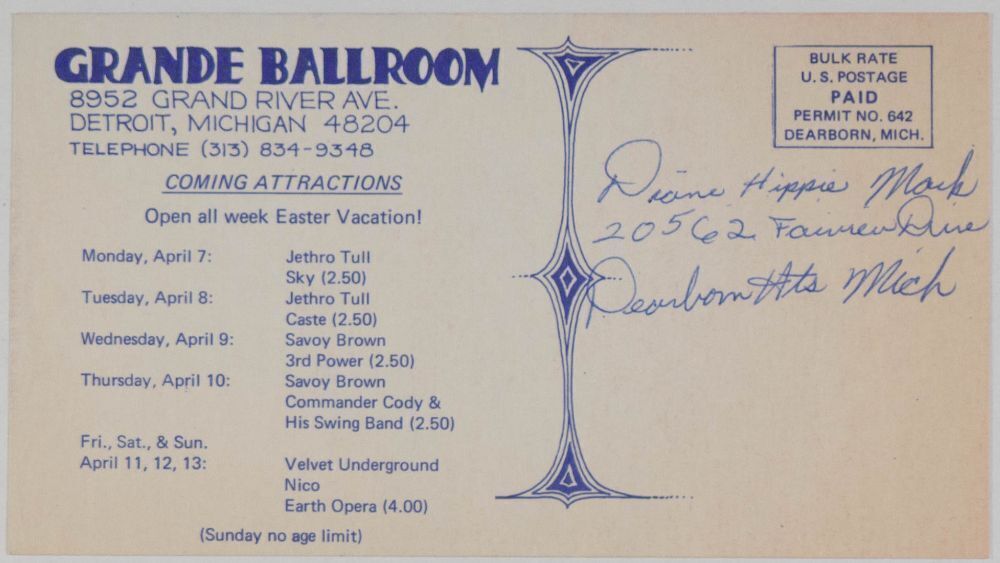 GRANDE BALLROOM
8952 GRAND RIVER AVE.
DETROIT, MICHIGAN 48204
TELEPHONE (313) 834-9348
COMING ATTRACTIONS
Open all week Easter Vacation!
Monday, April 7: Jethro Tull
Sky (2.50)
Tuesday, April 8: Jethro Tull
Caste (2.50)
Wednesday, April 9: Savoy Brown
3rd Power (2.50)
Thursday, April 10: Savoy Brown
Commander Cody &
His Swing Band (2.50)
Fri., Sat., & Sun.
April 11, 12, 13: Velvet Underground
Nico
Earth Opera (4.00)
(Sunday no age limit)
BULK RATE
U. S. POSTAGE
PAID
PERMIT NO. 642
DEARBORN, MICH.
Diane Hippie
20562 Drive
Dearborn Hts Mich